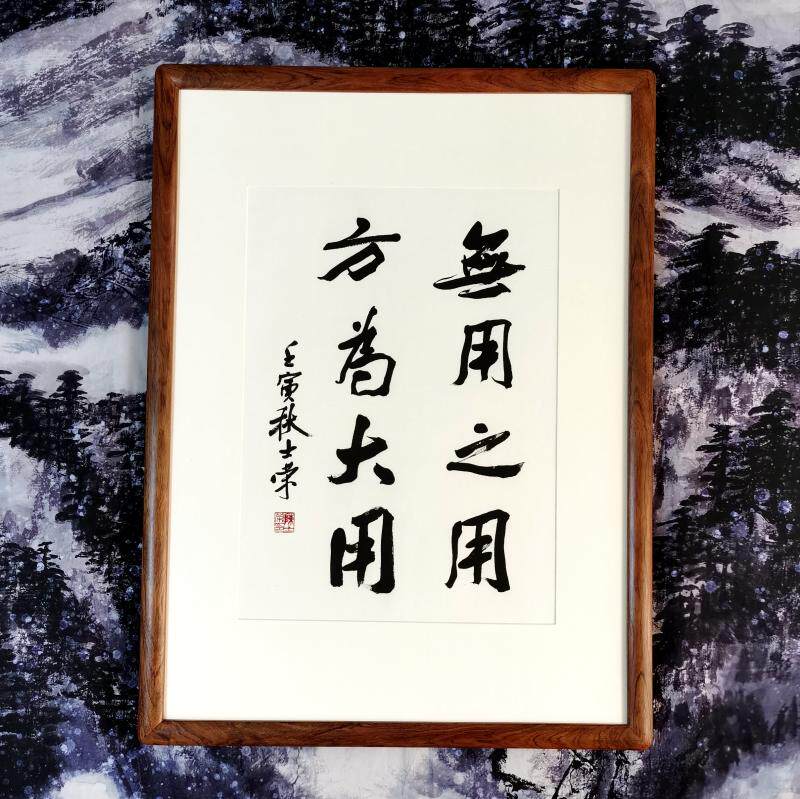 無用之用
方為大用
壬寅秋士荣